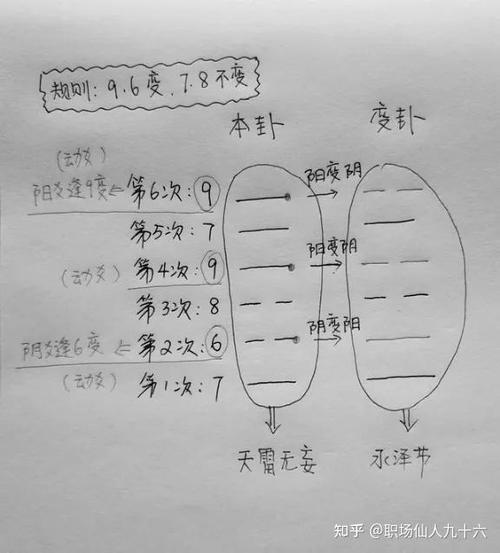 规则:9.6变,7.8不变
本卦 变卦
(动爻)
阳爻逢9变 ← 第6次:9 阳变阴
第5次:7
(动爻) 第4次:9 阳变阴
第3次:8
阴爻逢6变 ← 第2次:6 阴变阳
(动爻) 第1次:7
天雷无妄 水泽节
知乎 @职场仙人九十六